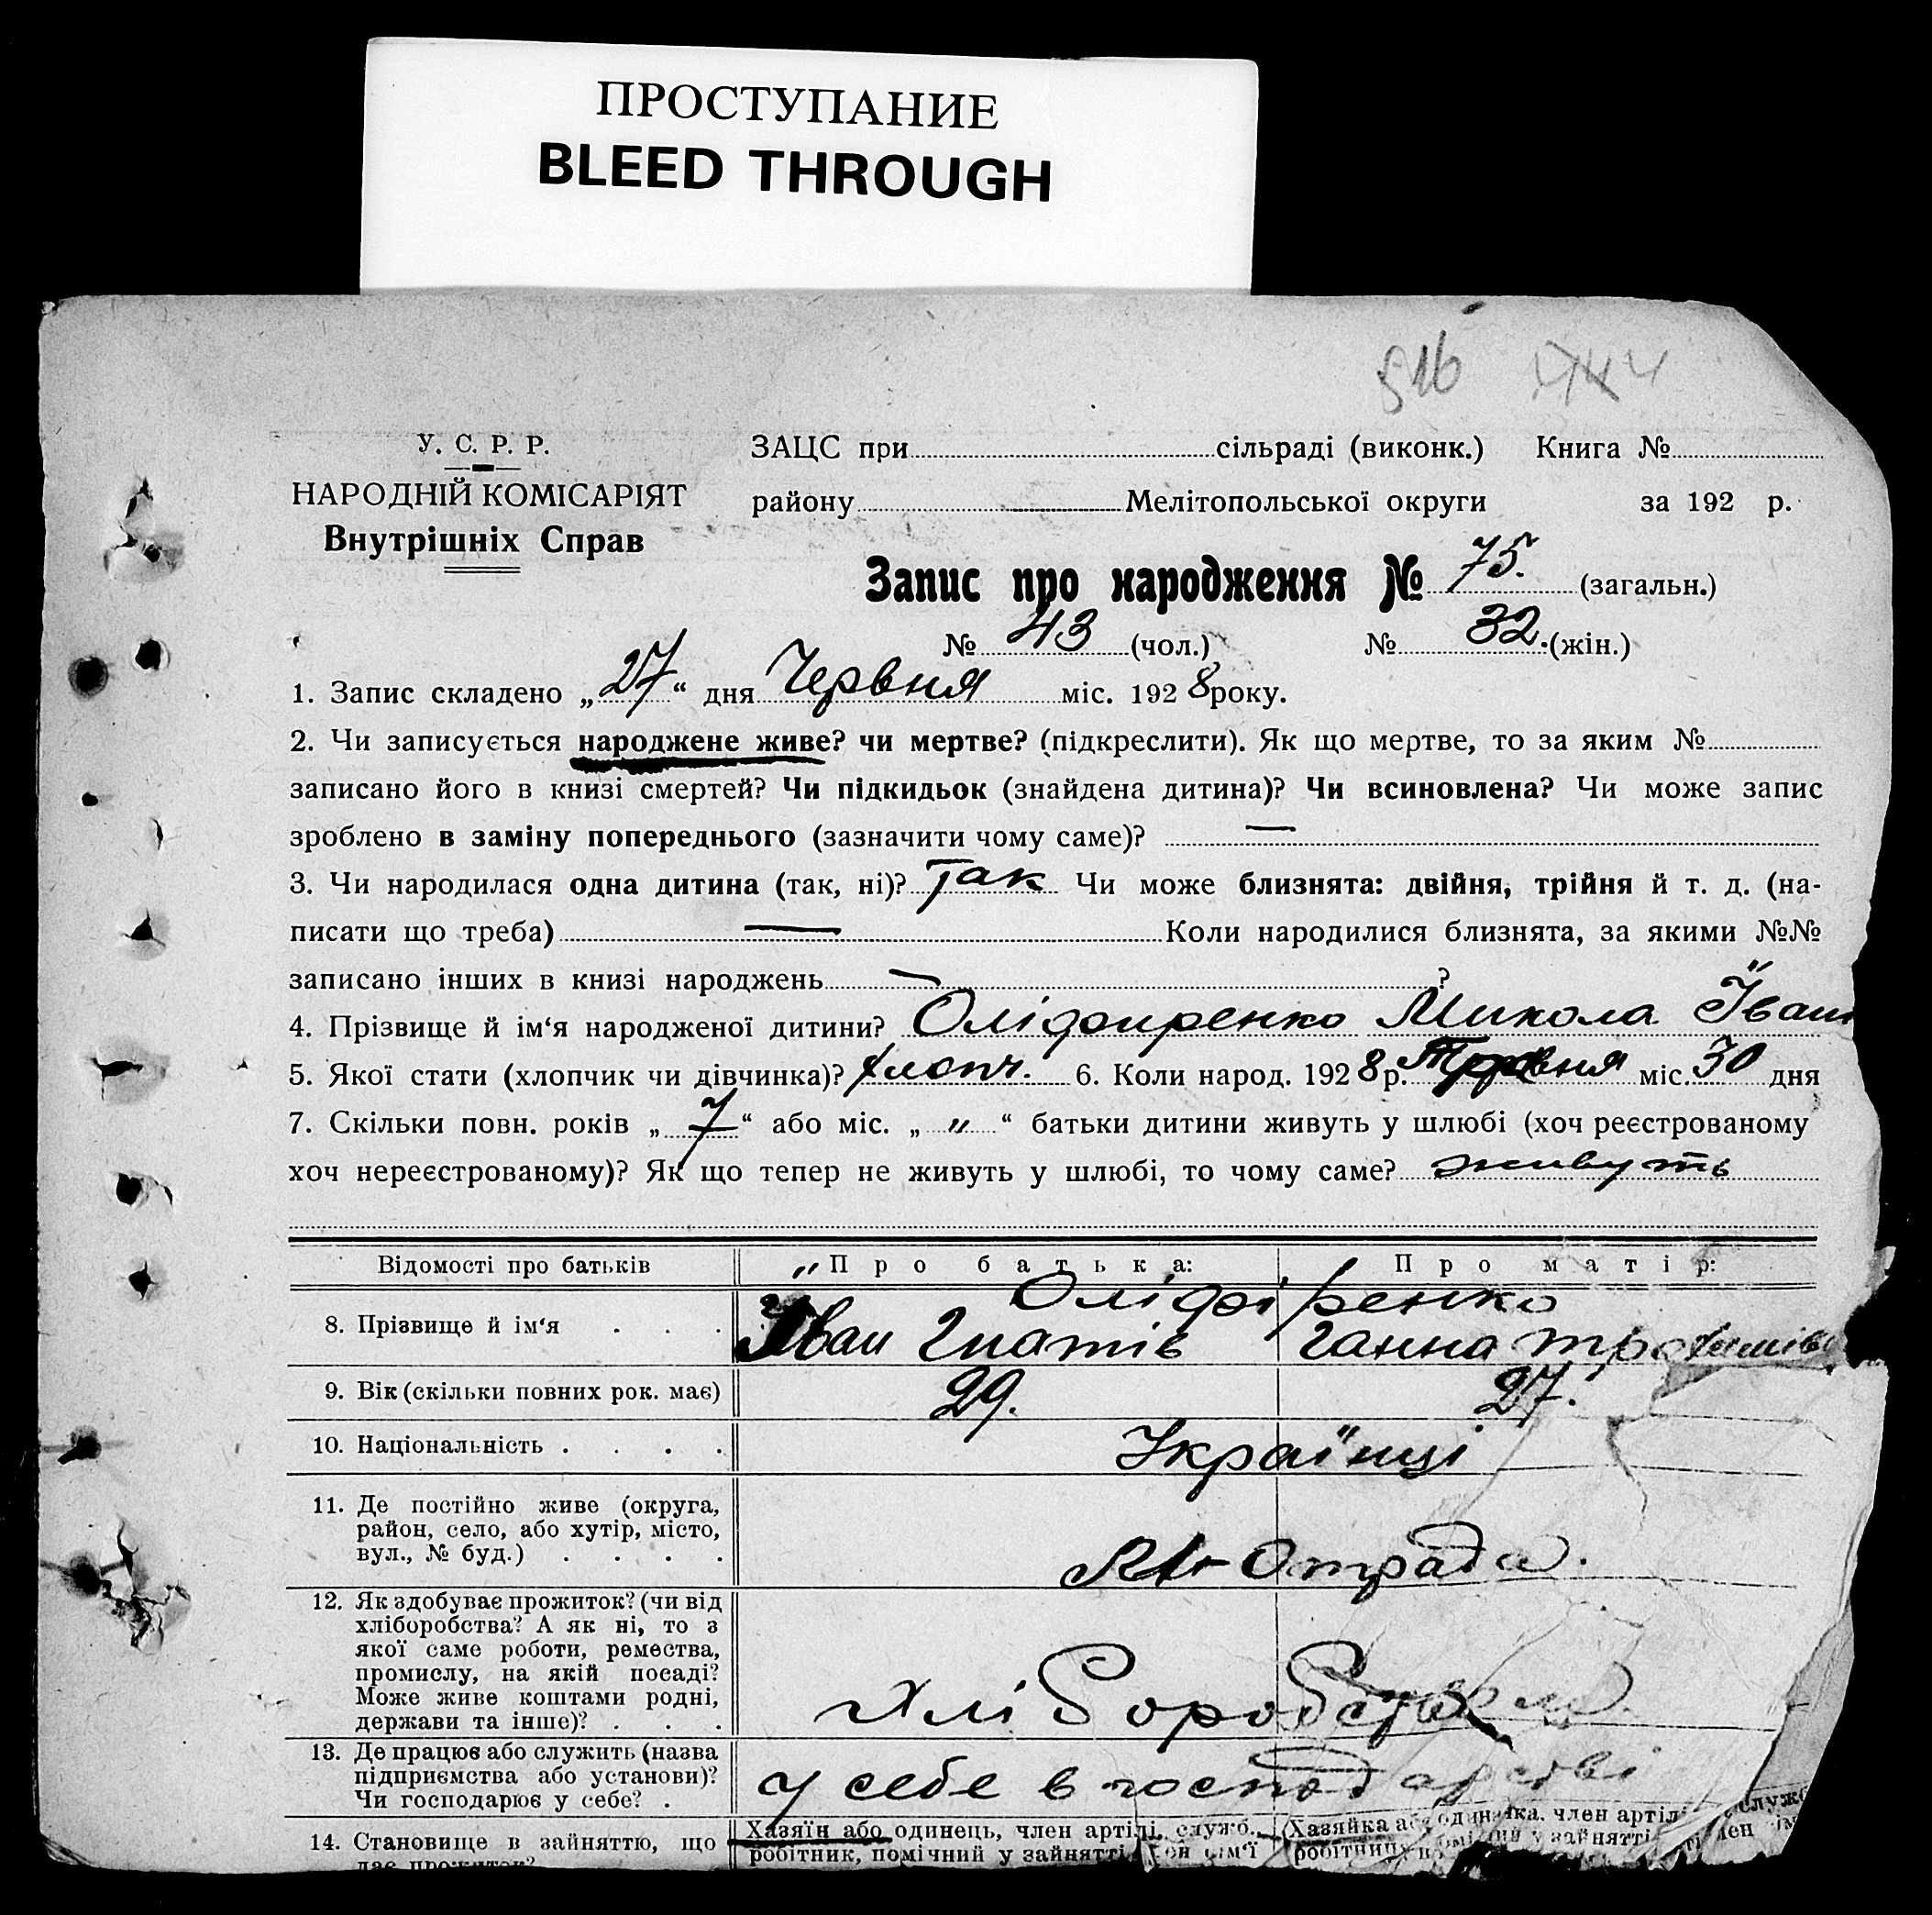 ПРОСТУПАНИЕ
BLEED THROUGH
516
У. С. Р. Р.
НАРОДНІЙ КОМІСАРІЯТ
Внутрішніх Справ
ЗАЦС при сільраді (виконк.) Книга №
району Мелітопольської округи за 192 р.
Запис про народження № 75. (загальн.)
№ 43 (чол.) № 32. (жін.)
1. Запис складено „27“ дня Червня міс. 1928 року.
2. Чи записується народжене живе? чи мертве? (підкреслити). Як що мертве, то за яким №
записано його в книзі смертей? Чи підкидьок (знайдена дитина)? Чи всиновлена? Чи може запис
зроблено в заміну попереднього (зазначити чому саме)? —
3. Чи народилася одна дитина (так, ні)? Так Чи може близнята: двійня, трійня й т. д. (на-
писати що треба) — Коли народилися близнята, за якими №№
записано інших в книзі народжень — ?
4. Прізвище й ім‘я народженої дитини? Оліфиренко Микола Іван
5. Якої стати (хлопчик чи дівчинка)? хлопч. 6. Коли народ. 1928 р. Травня міс. 30 дня
7. Скільки повн. років „7“ або міс. „ 〃 “ батьки дитини живуть у шлюбі (хоч реєстрованому
хоч нереєстрованому)? Як що тепер не живуть у шлюбі, то чому саме? живуть
Відомості про батьків Про батька: Про матір:
Оліфіренко
8. Прізвище й ім‘я . . . Іван Гнатів Ганна Трохимів
9. Вік (скільки повних рок. має) 29. 27.
10. Національність . . . . Українці
11. Де постійно живе (округа,
район, село, або хутір, місто,
вул., № буд.) . . . . Отрада.
12. Як здобуває прожиток? (чи від
хліборобства? А як ні, то з
якої саме роботи, ремества,
промислу, на якій посаді?
Може живе коштами родні,
держави та інше)? . . . Хліборобством.
13. Де працює або служить (назва
підприємства або установи)?
Чи господарює у себе? . у себе в господарстві
14. Становище в зайняттю, що Хазяїн або одинець, член артілі, служб., Хазяйка або одиначка, член артілі служб
дає прожиток? робітник, помічний у зайнятті, член сім‘ї робітниця у зайнятті член сім